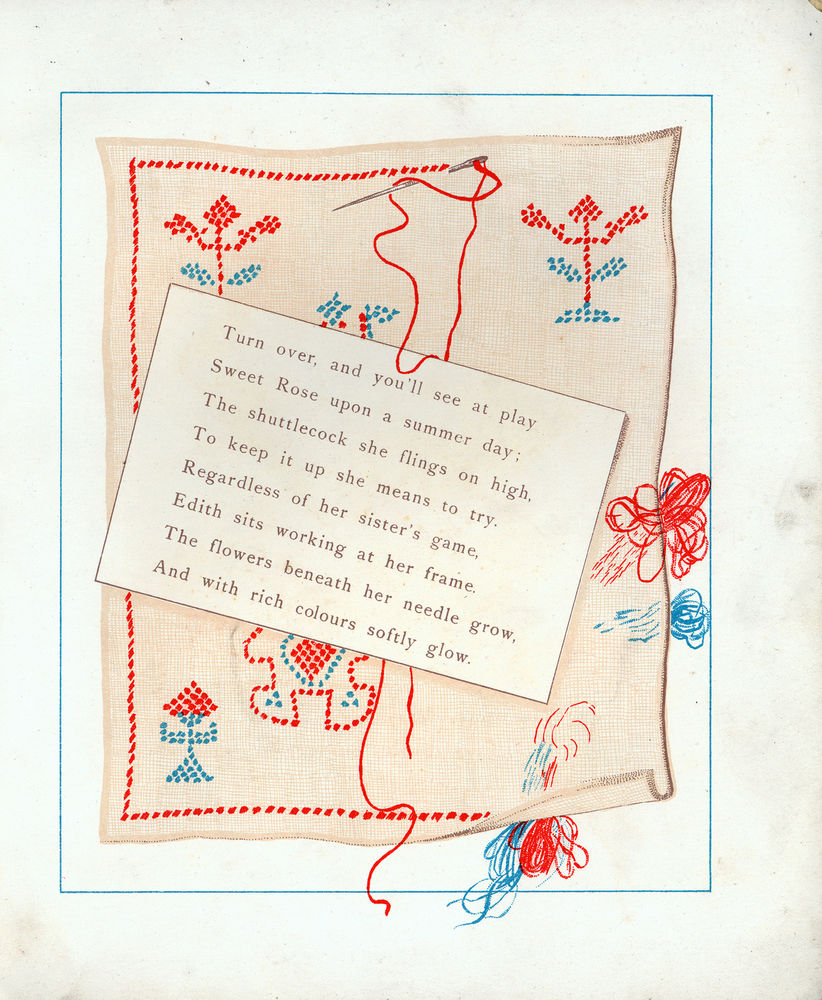 Turn over, and you'll see at play
Sweet Rose upon a summer day;
The shuttlecock she flings on high,
To keep it up she means to try.
Regardless of her sister's game,
Edith sits working at her frame.
The flowers beneath her needle grow,
And with rich colours softly glow.